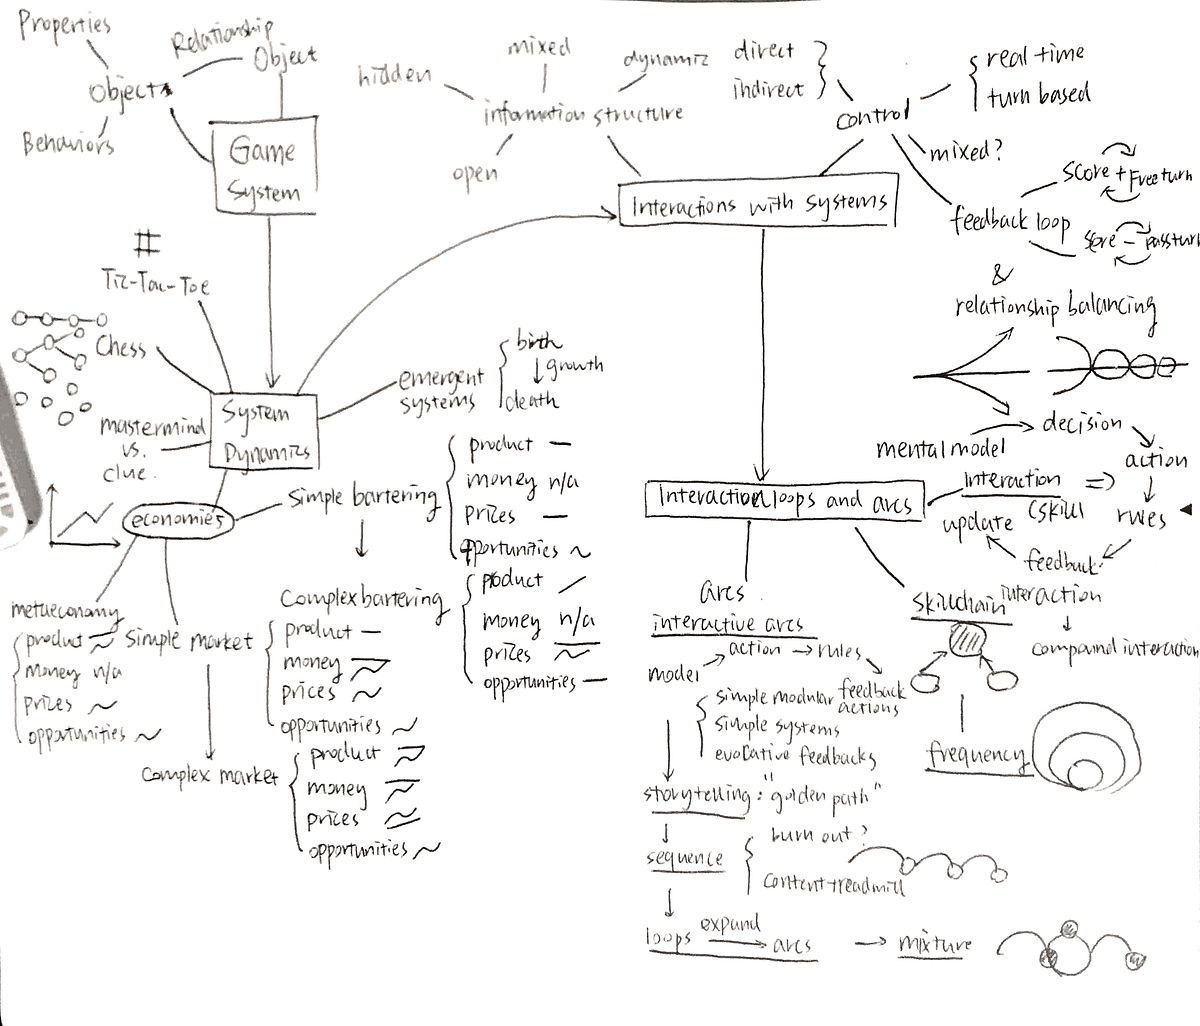 Properties
Relationship
Object
Objects
Behaviors
Game
System
#
Tic-Tac-Toe
Chess
mastermind
vs.
clue.
System
Dynamics
emergent
systems
birth
growth
death
economies
Simple bartering
product —
money n/a
prices —
opportunities ~
Complex bartering
product
money n/a
prices
opportunities —
metaeconomy
product
money n/a
prices ~
opportunities ~
Simple market
product —
money
prices ~
opportunities ~
Complex market
product
money
prices
opportunities ~
hidden
mixed
dynamic
information structure
open
direct
indirect
control
real time
turn based
mixed?
feedback loop
Score + Free turn
Score – pass turn
&
relationship balancing
Interactions with Systems
Interaction loops and arcs
mental model
decision
action
rules
feedback
update
Interaction
(skill
=>
arcs
interactive arcs
model
action → rules
feedback
simple modular actions
simple systems
evocative feedbacks
storytelling: "golden path"
sequence
burn out?
content treadmill
loops
expand
arcs
→ mixture
skillchain
interaction
compound interaction
frequency